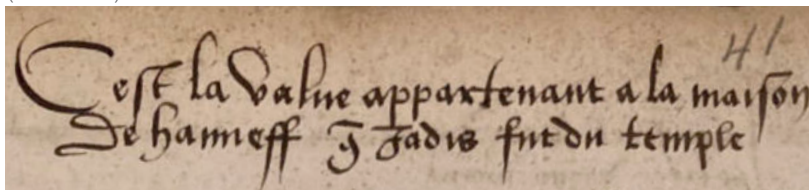 41
Cest la value appartenant a la maison
de hanneff q̄ Jadis fut du temple